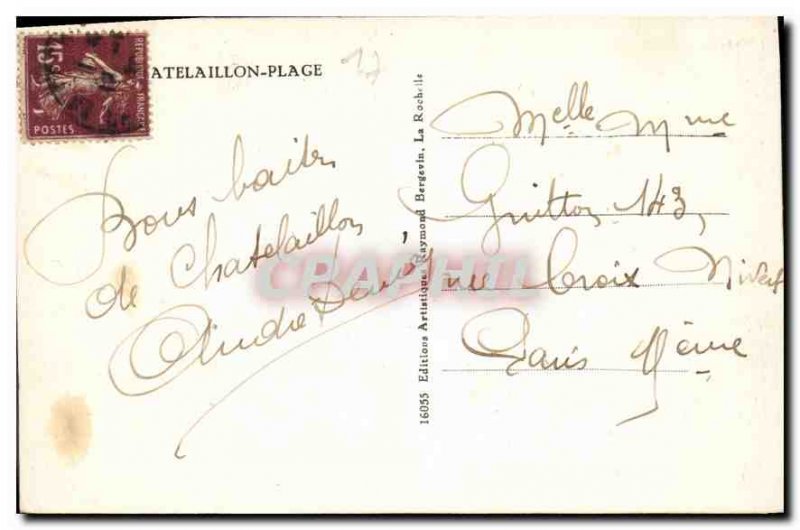 15c
REPUBLIQUE FRANÇAISE
POSTES
ATELAILLON-PLAGE
17
Bons baisers
de Chatelaillon
André Denis
16055 Editions Artistiques Raymond Bergevin, La Rochelle
Melle Mme
Guitton 143,
rue Croix Nivert
Paris
CPRAPHIL